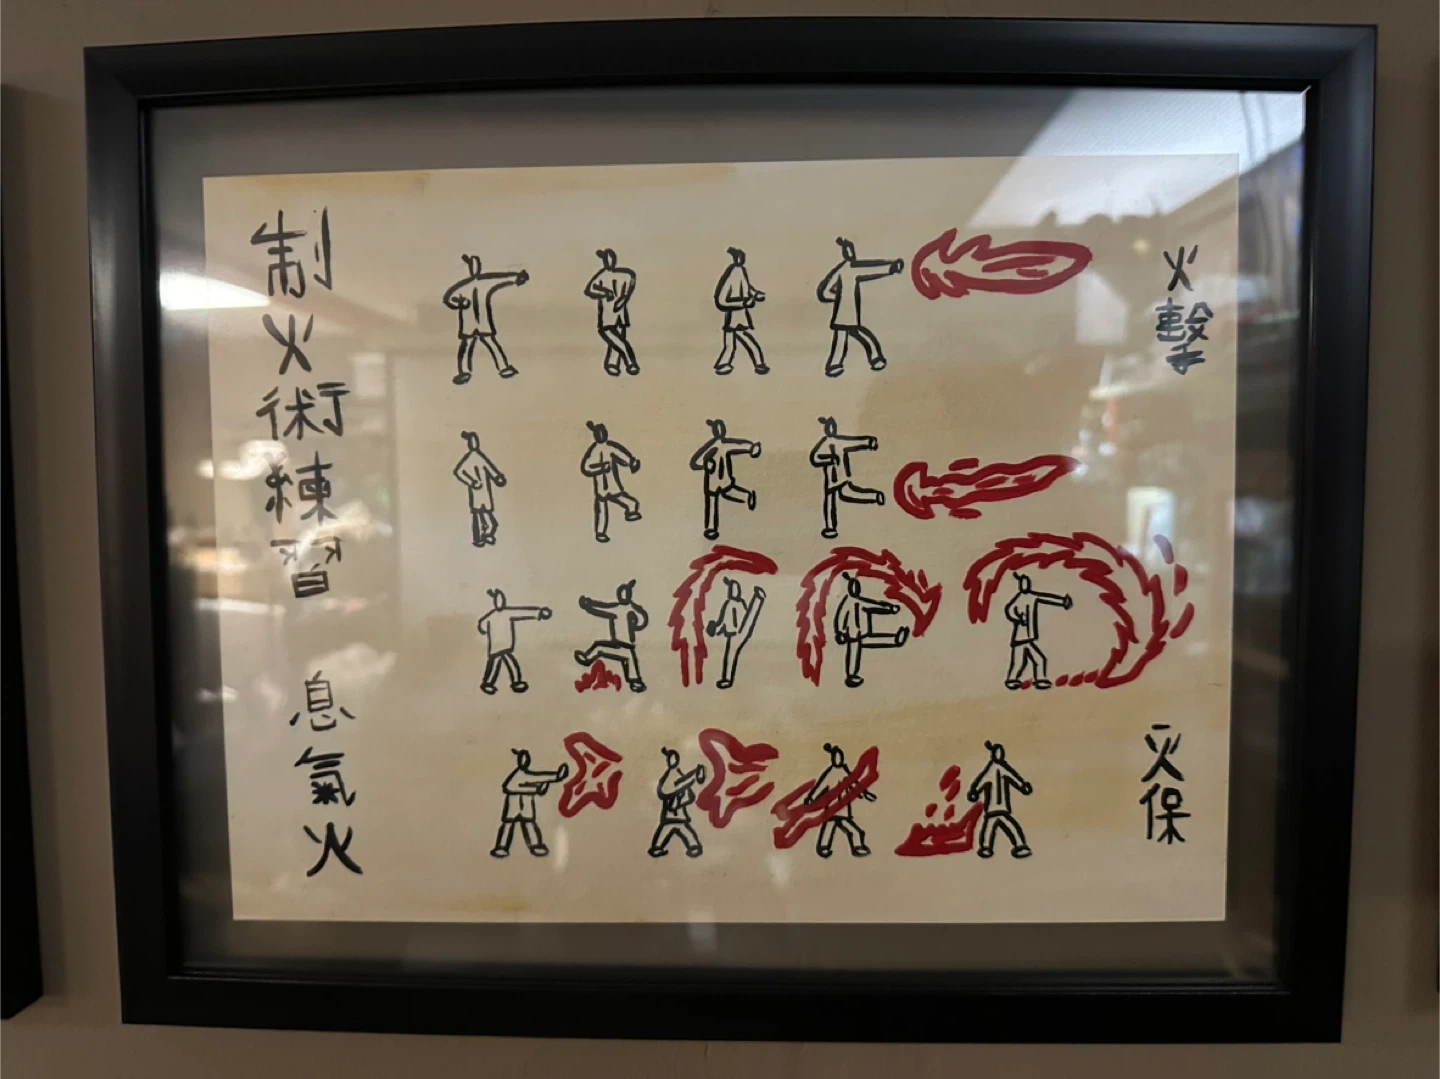 制火術練習
息氣火
火擊
灭保